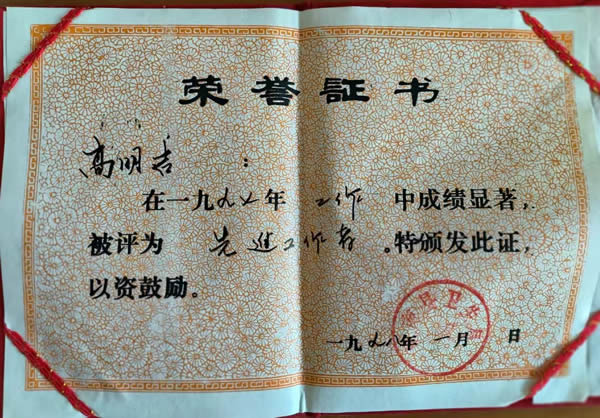 荣誉証书
高明吉：
在一九九七年 工作 中成绩显著，
被评为 先進工作者 。特颁发此证，
以资鼓励。
一九九八年 一月 日